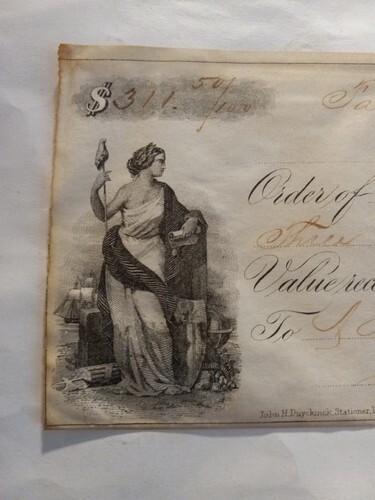 $311. 50/100
Order of
Three
Value rec
To
John H. Duyckinck, Stationer,